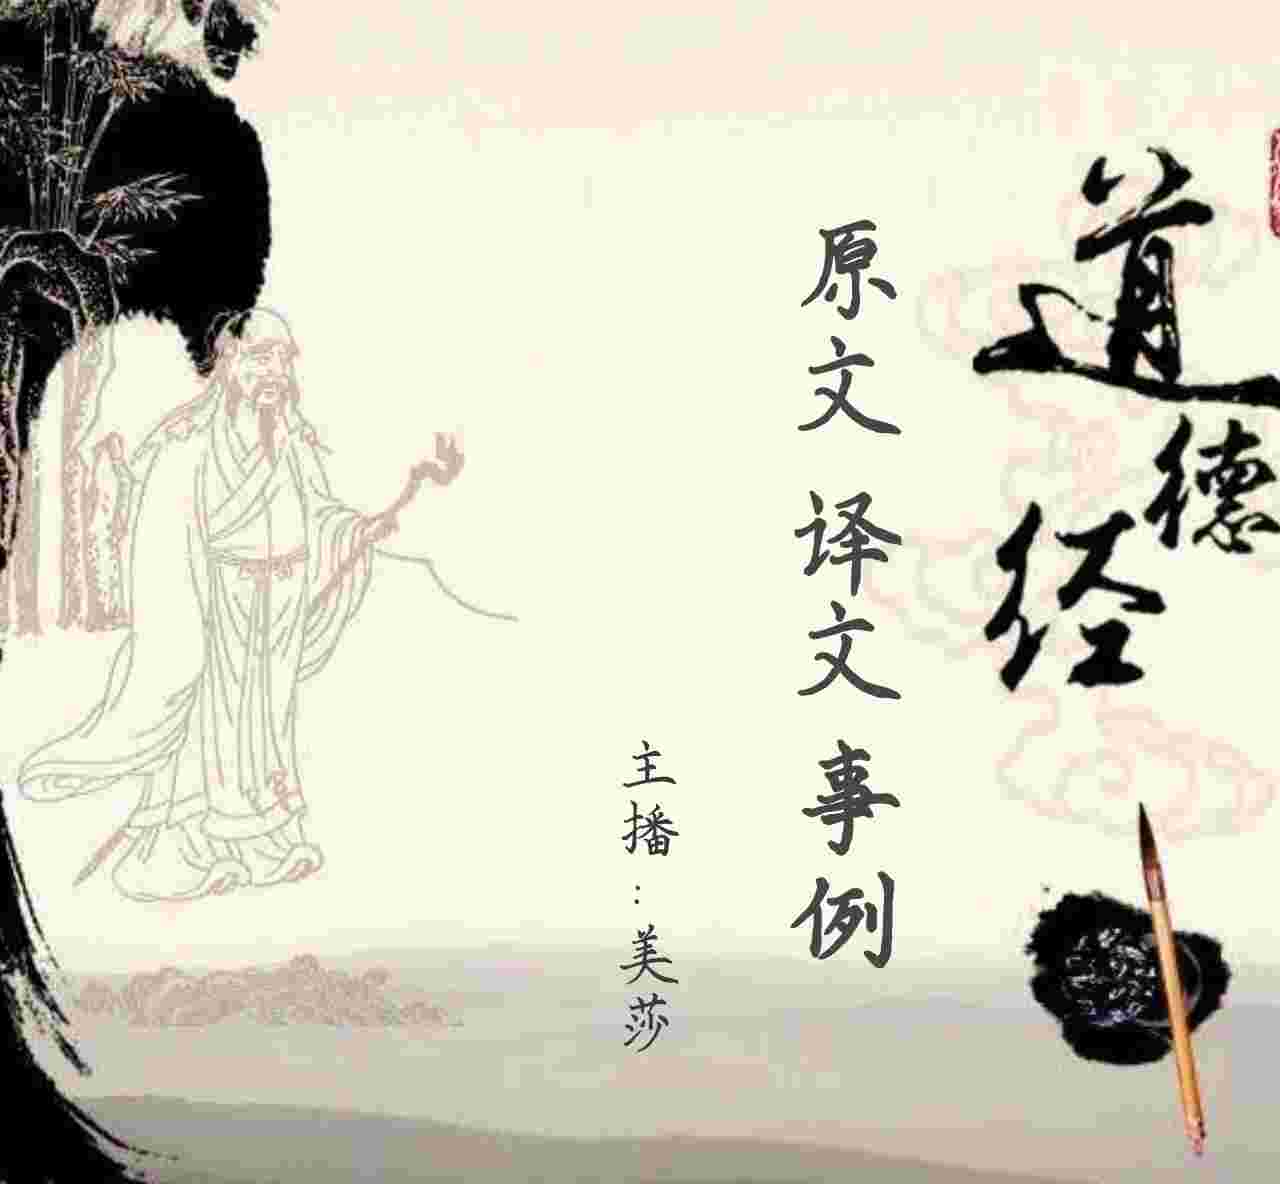 道德经
原文 译文 事例
主播：美莎